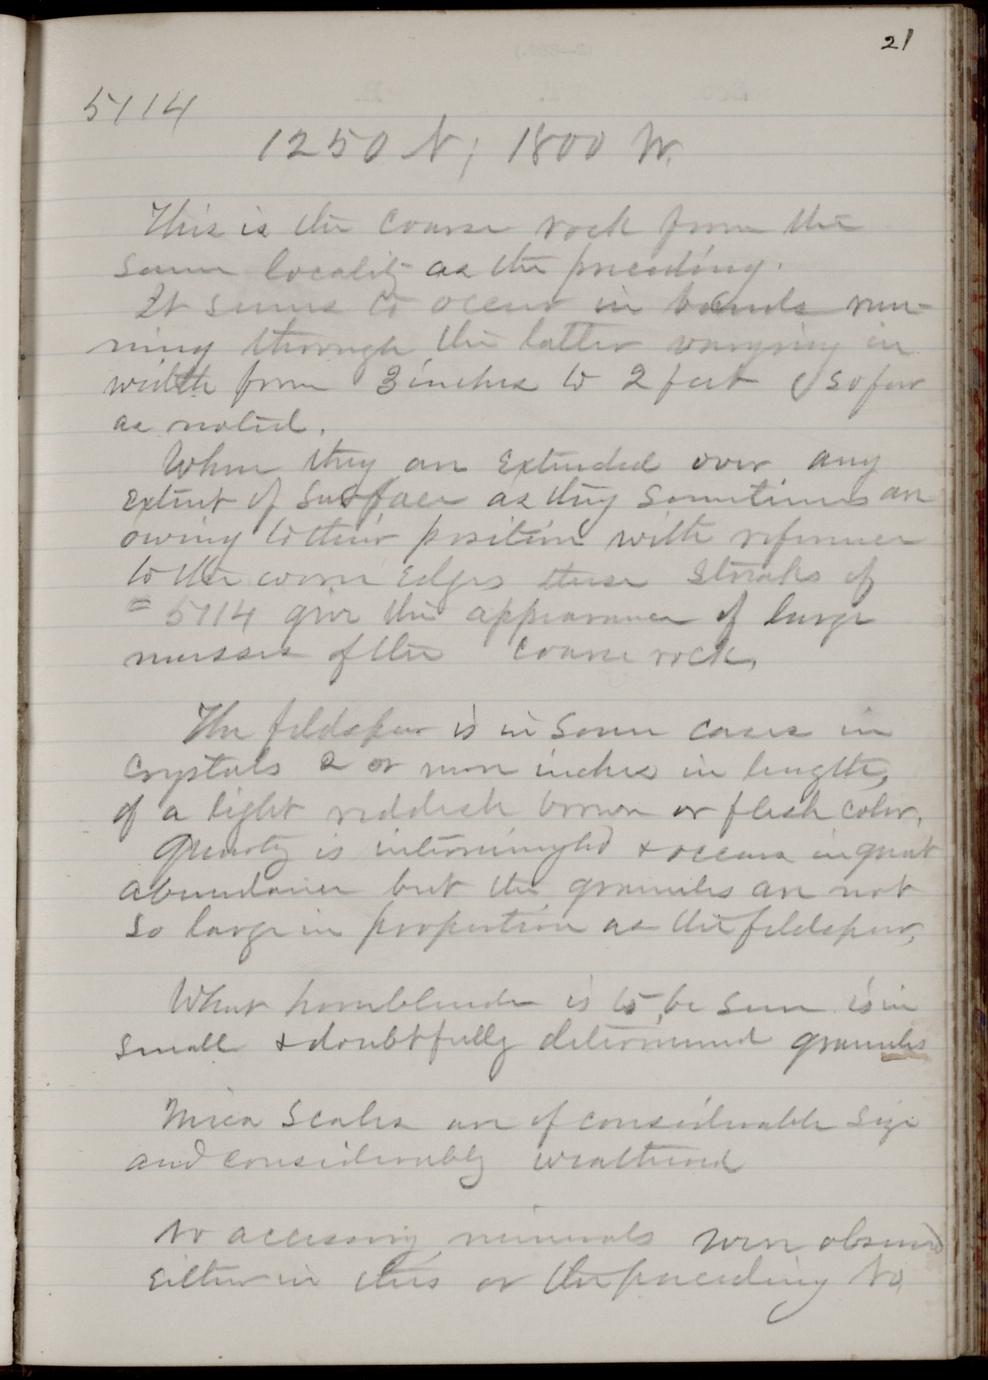 21
5114
1250 N; 1800 W.
This is the coarse rock from the
same locality as the preceding.
It seems to occur in bands run-
ning through the latter varying in
width from 3 inches to 2 feet so far
as noted.
When they are extended over any
extent of surface as they sometimes are
owing to their position with reference
to the worn edges these streaks of
= 5114 give the appearance of large
masses of the coarse rock.
The feldspar is in some cases in
crystals 2 or more inches in length,
of a light reddish brown or flesh color.
Quartz is intermingled & occurs in great
abundance but the granules are not
so large in proportion as the feldspar.
What hornblende is to be seen is in
small & doubtfully determined granules
Mica scales are of considerable size
and considerably weathered
No accessory minerals were observed
either in this or the preceding No